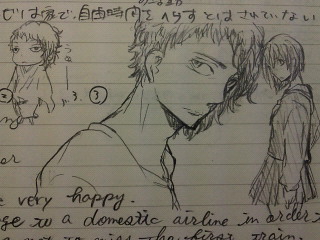 じは家で、自由時間をへらすとはされていない
②
う〜
p.3. ③
e very happy.
ge to a domestic airline in order t
not to miss the first train.